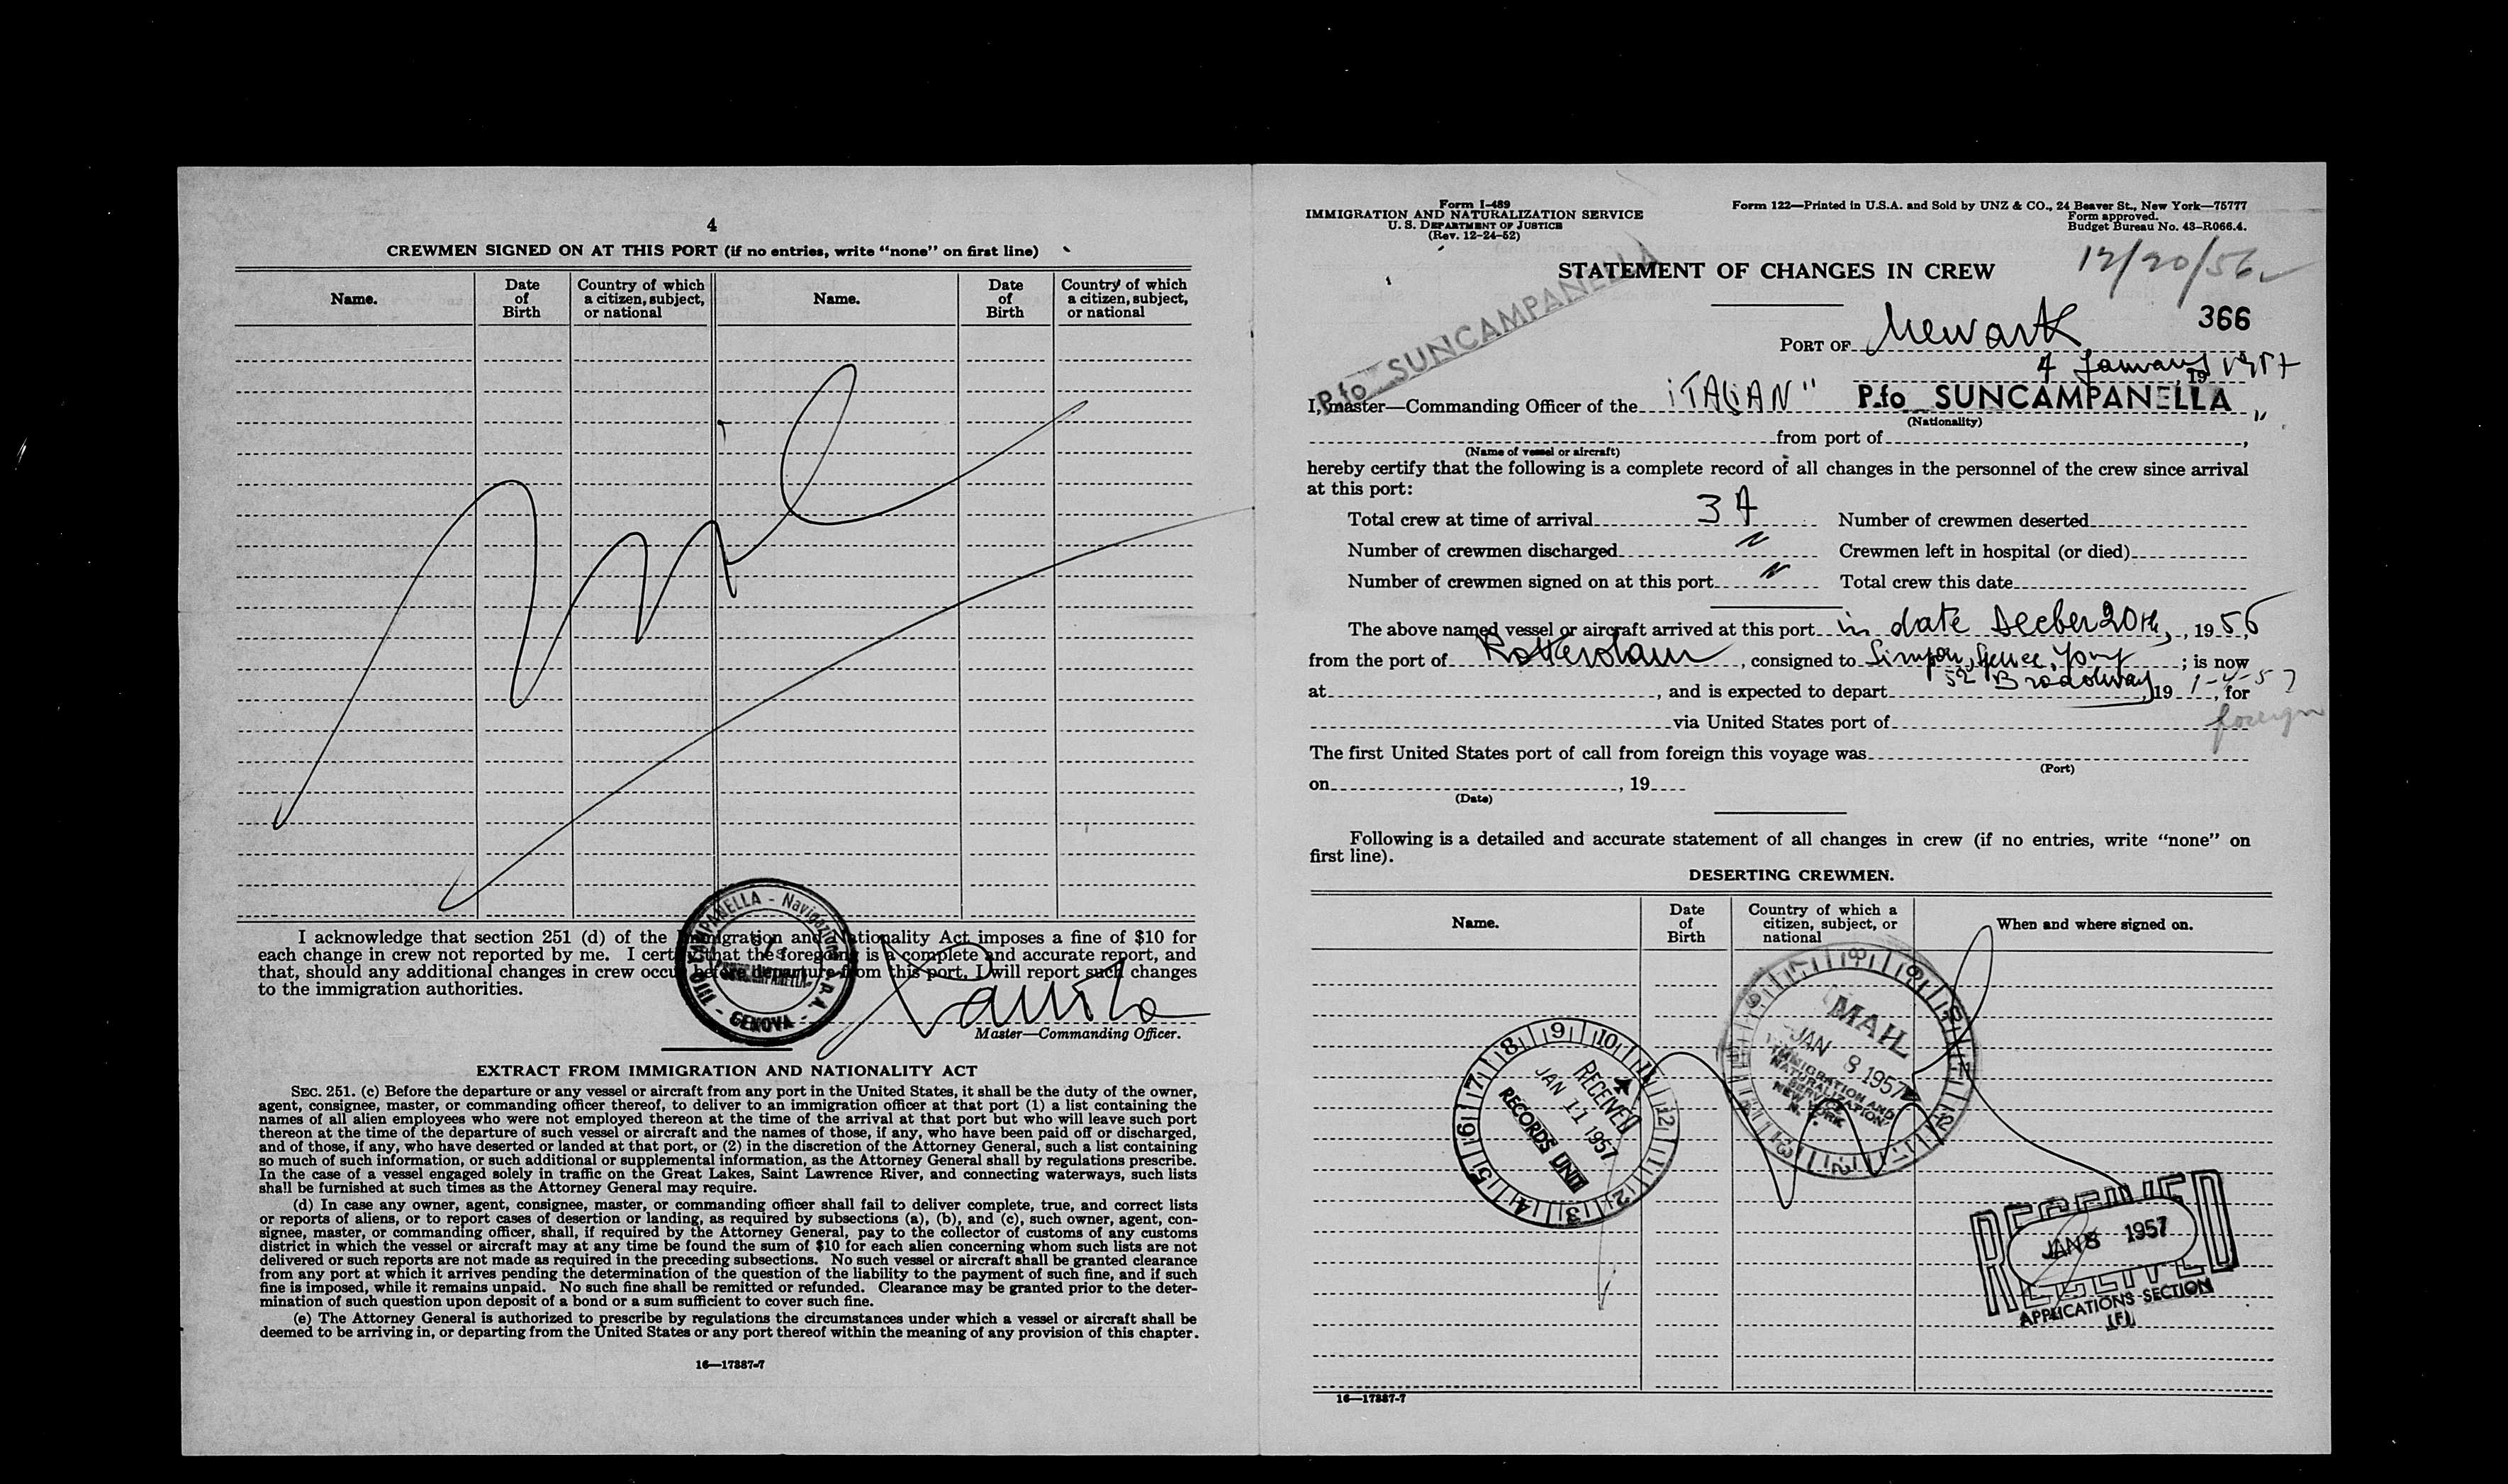 4
CREWMEN SIGNED ON AT THIS PORT (if no entries, write “none” on first line)
Name.
Date
of
Birth
Country of which
a citizen, subject,
or national
Name.
Date
of
Birth
Country of which
a citizen, subject,
or national
Nil
I acknowledge that section 251 (d) of the Immigration and Nationality Act imposes a fine of $10 for
each change in crew not reported by me. I certify that the foregoing is a complete and accurate report, and
that, should any additional changes in crew occur before departure from this port, I will report such changes
to the immigration authorities.
Master—Commanding Officer.
EXTRACT FROM IMMIGRATION AND NATIONALITY ACT
SEC. 251. (c) Before the departure or any vessel or aircraft from any port in the United States, it shall be the duty of the owner,
agent, consignee, master, or commanding officer thereof, to deliver to an immigration officer at that port (1) a list containing the
names of all alien employees who were not employed thereon at the time of the arrival at that port but who will leave such port
thereon at the time of the departure of such vessel or aircraft and the names of those, if any, who have been paid off or discharged,
and of those, if any, who have deserted or landed at that port, or (2) in the discretion of the Attorney General, such a list containing
so much of such information, or such additional or supplemental information, as the Attorney General shall by regulations prescribe.
In the case of a vessel engaged solely in traffic on the Great Lakes, Saint Lawrence River, and connecting waterways, such lists
shall be furnished at such times as the Attorney General may require.
(d) In case any owner, agent, consignee, master, or commanding officer shall fail to deliver complete, true, and correct lists
or reports of aliens, or to report cases of desertion or landing, as required by subsections (a), (b), and (c), such owner, agent, con-
signee, master, or commanding officer, shall, if required by the Attorney General, pay to the collector of customs of any customs
district in which the vessel or aircraft may at any time be found the sum of $10 for each alien concerning whom such lists are not
delivered or such reports are not made as required in the preceding subsections. No such vessel or aircraft shall be granted clearance
from any port at which it arrives pending the determination of the question of the liability to the payment of such fine, and if such
fine is imposed, while it remains unpaid. No such fine shall be remitted or refunded. Clearance may be granted prior to the deter-
mination of such question upon deposit of a bond or a sum sufficient to cover such fine.
(e) The Attorney General is authorized to prescribe by regulations the circumstances under which a vessel or aircraft shall be
deemed to be arriving in, or departing from the United States or any port thereof within the meaning of any provision of this chapter.
16—17887-7
Form I-489
IMMIGRATION AND NATURALIZATION SERVICE
U. S. DEPARTMENT OF JUSTICE
(Rev. 12-24-52)
Form 122—Printed in U.S.A. and Sold by UNZ & CO., 24 Beaver St., New York—75777
Form approved.
Budget Bureau No. 43-R066.4.
12/20/56
STATEMENT OF CHANGES IN CREW
P.fo SUNCAMPANELLA
366
PORT OF Newark
4 January 1957
19
I, master—Commanding Officer of the ITALIAN" P.fo SUNCAMPANELLA "
(Nationality)
from port of ,
(Name of vessel or aircraft)
hereby certify that the following is a complete record of all changes in the personnel of the crew since arrival
at this port:
Total crew at time of arrival Number of crewmen deserted
Number of crewmen discharged Crewmen left in hospital (or died)
Number of crewmen signed on at this port Total crew this date
The above named vessel or aircraft arrived at this port in date Decber 20th, , 1956
from the port of Rotterdam , consigned to ; is now
52 Broadway
at , and is expected to depart 19 1-4-57, for
foreign
via United States port of
The first United States port of call from foreign this voyage was
(Port)
on , 19
(Date)
Following is a detailed and accurate statement of all changes in crew (if no entries, write “none” on
first line).
DESERTING CREWMEN.
Name.
Date
of
Birth
Country of which a
citizen, subject, or
national
When and where signed on.
MAIL
JAN 8 1957
IMMIGRATION AND
NATURALIZATION
SERVICE
NEW YORK
N. Y.
RECEIVED
JAN 11 1957
RECORDS UNIT
RECEIVED
JAN 8 1957
APPLICATIONS SECTION
(F)
16—17887-7